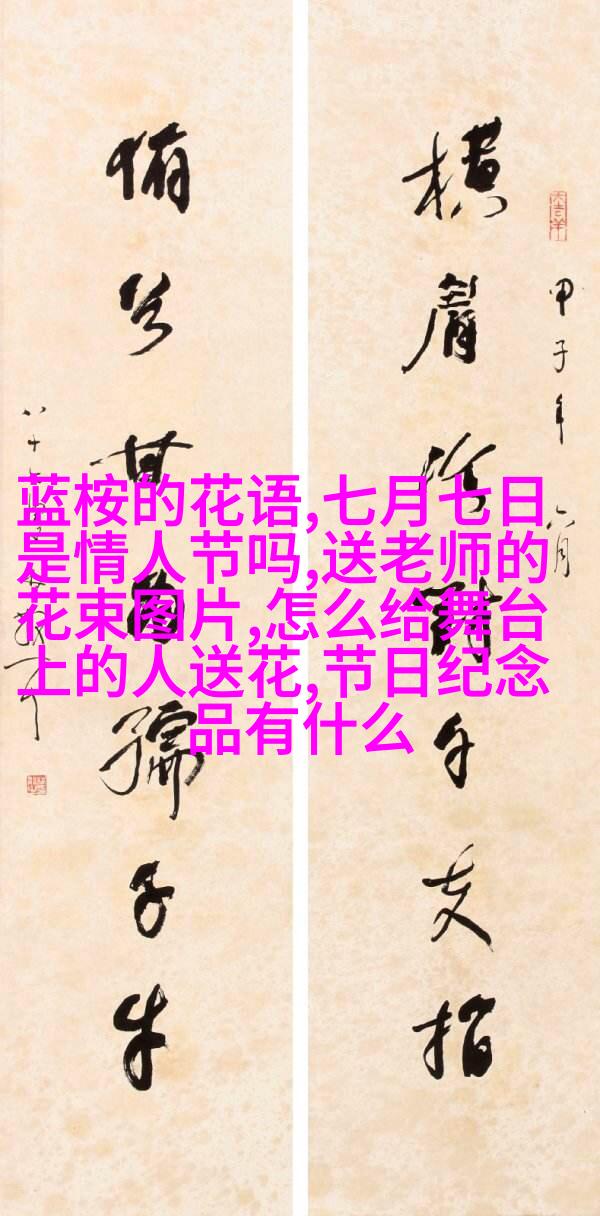 大吉羊
甲子年六月
橫眉冷對千夫指
俯首甘為孺子牛
蓝桉的花语,七月七日
是情人节吗,送老师的
花束图片,怎么给舞台
上的人送花,节日纪念
品有什么